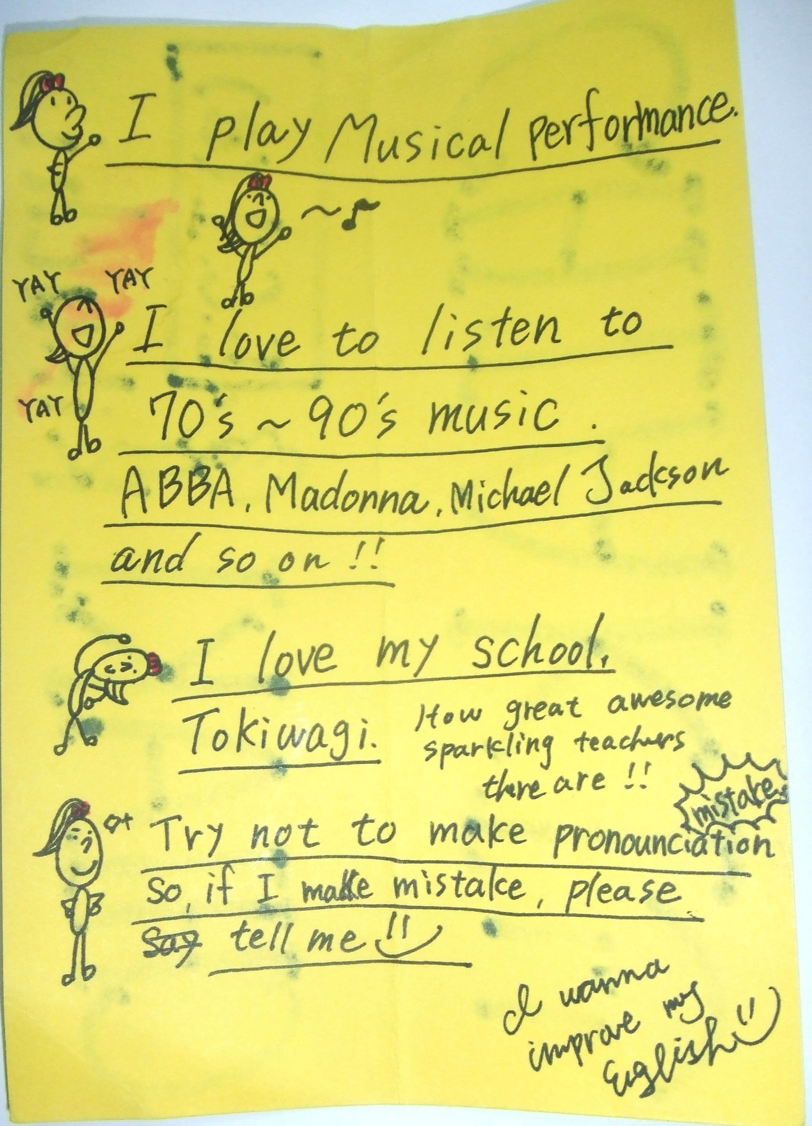 I play Musical performance.
YAY YAY
I love to listen to
YAY
70's ~ 90's music.
ABBA, Madonna, Michael Jackson
and so on!!
I love my school,
Tokiwagi.
How great awesome
sparkling teachers
there are!!
mistake
Try not to make pronounciation
So, if I make mistake, please
say tell me!!
I wanna
improve my
English!!